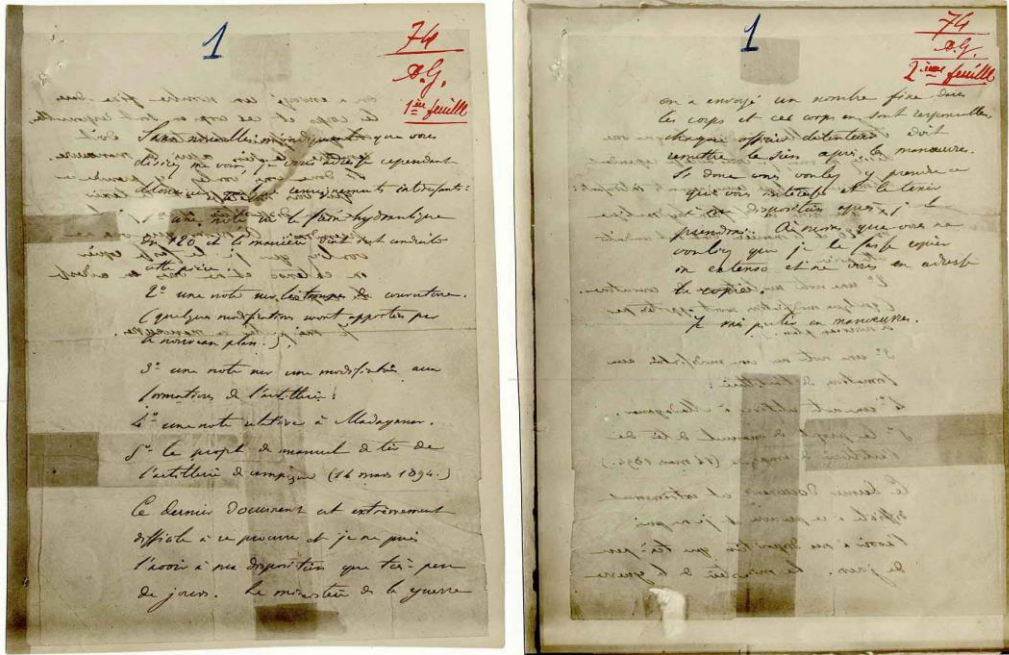 1
74
D.G.
1ière feuille
Sans nouvelles m'indiquant que vous
désirez me voir, je vous adresse cependant
Monsieur quelques renseignements intéressants :
1° une note sur le frein hydraulique
du 120 et la manière dont s'est conduite
cette pièce.
2° une note sur les troupes de couverture.
(quelques modifications seront apportées par
le nouveau plan.)
3° une note sur une modification aux
formations de l'artillerie :
4° une note relative à Madagascar.
5° le projet de manuel de tir de
l'artillerie de campagne (14 mars 1894.)
Ce dernier document est extrêmement
difficile à se procurer et je ne puis
l'avoir à ma disposition que très peu
de jours. Le ministère de la guerre
1
74
D.G.
2ième feuille
en a envoyé un nombre fixe dans
les corps et ces corps en sont responsables,
chaque officier détenteur doit
remettre le sien après les manœuvres.
Si donc vous voulez y prendre ce
qui vous intéresse et le tenir
à ma disposition après, je le
prendrai. A moins que vous ne
vouliez que je le fasse copier
in extenso et ne vous en adresse
la copie.
Je vais partir en manœuvres.